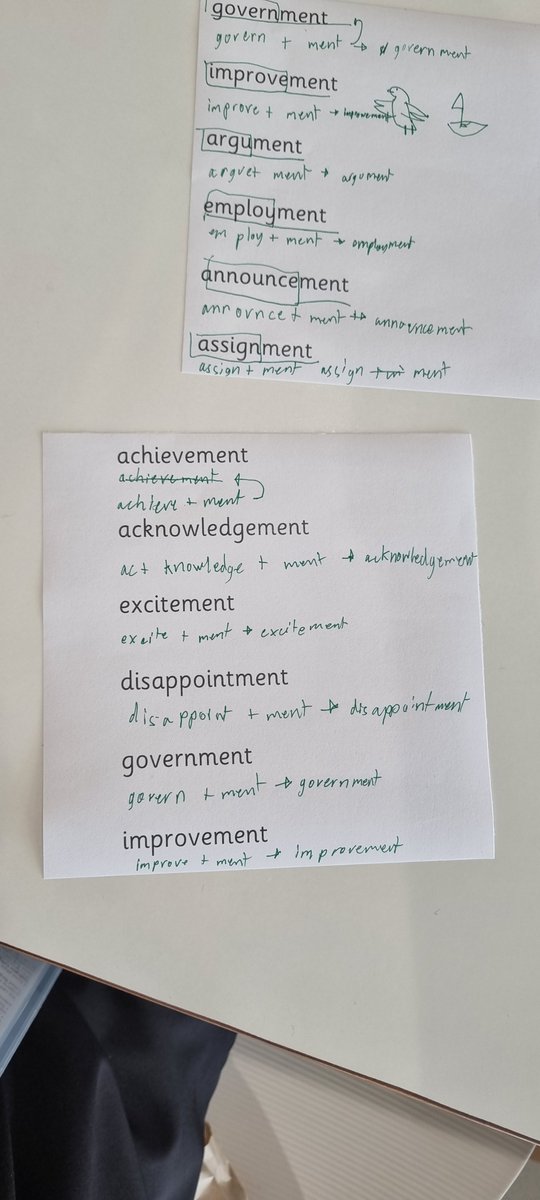 government
govern + ment → government
improvement
improve + ment → improvement
argument
argue+ ment → argument
employment
em ploy + ment → employment
announcement
announce + ment → announcement
assignment
assign + ment assign ment
achievement
achievement
achieve + ment
acknowledgement
act knowledge + ment → acknowledgement
excitement
excite + ment → excitement
disappointment
disappoint + ment → disappointment
government
govern + ment → government
improvement
improve + ment → improvement